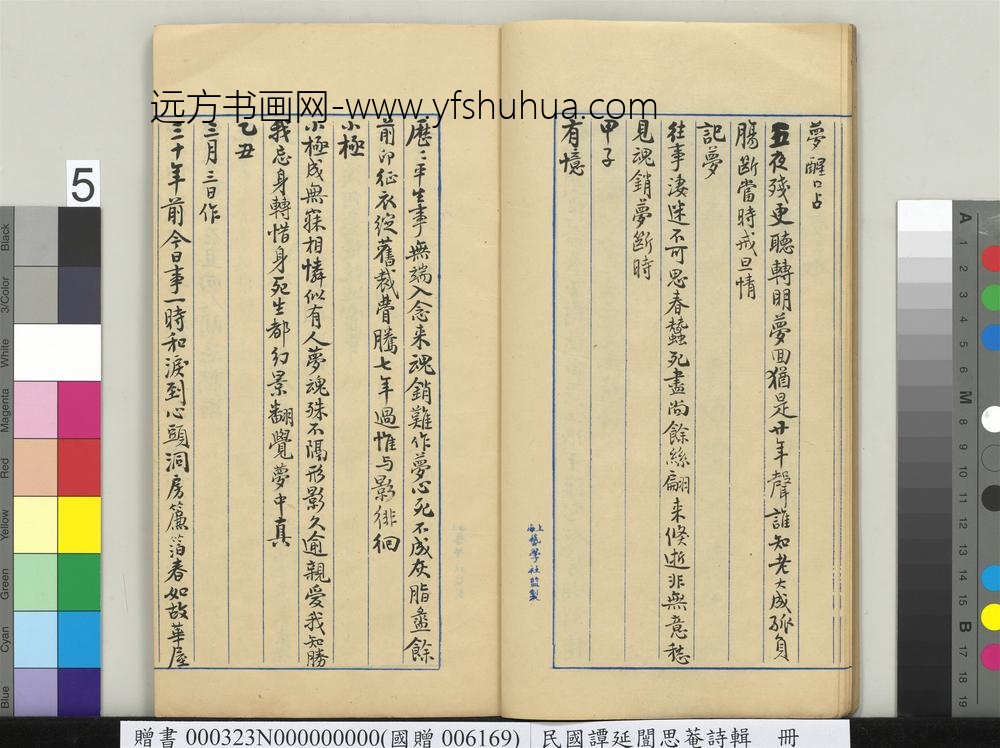 远方书画网-www.yfshuhua.com
夢醒口占
五夜殘更聽轉明夢回猶是廿年聲誰知老大成孤負
腸斷當時戒旦情
記夢
往事淒迷不可思春蠶死盡尚餘絲翩来倏逝非無意愁
見魂銷夢斷時
甲子
有憶
上海藝學社監製
歷歷平生事無端入念来魂銷難作夢心死不成灰脂盝餘
前印征衣綻舊裁瞢騰七年過惟与影徘徊
小極
小極成無寐相憐似有人夢魂殊不隔形影久逾親愛我知勝
我忘身轉惜身死生都幻景翻覺夢中真
乙丑
三月三日作
三十年前今日事一時和淚到心頭洞房簾箔春如故華屋
贈書 000323N000000000(國贈 006169)
民國譚延闓思菴詩輯 冊
5
Black
3/Color
White
Magenta
Red
Yellow
Green
Cyan
Blue
A
1
2
3
4
5
6
M
8
9
10
11
12
13
14
15
B
17
18
19